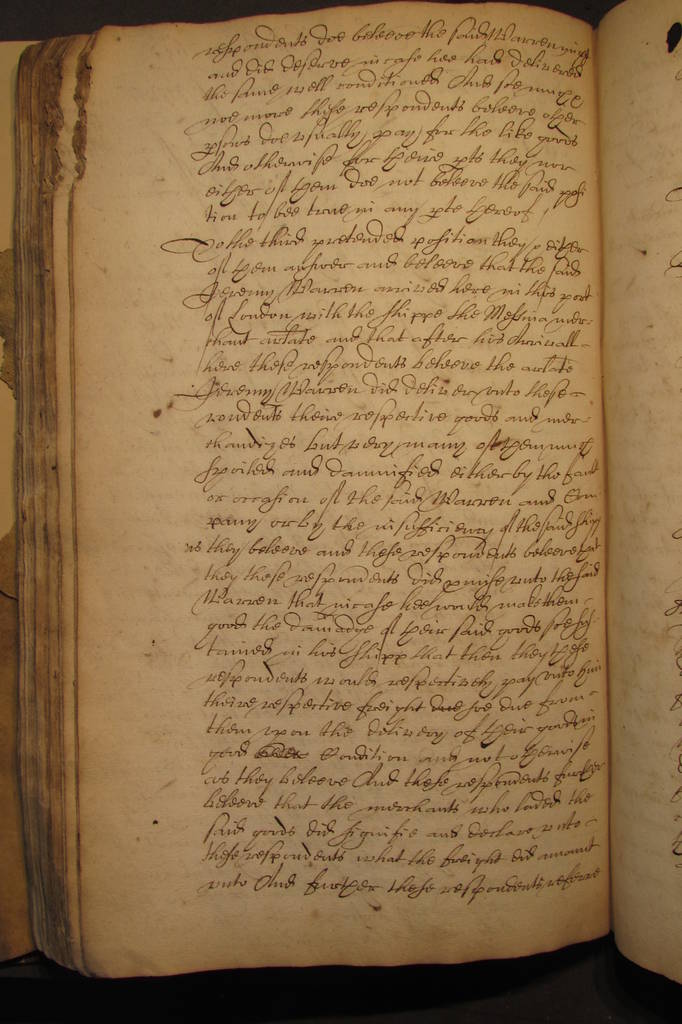 respondents doe beleeve the said Warren might
and did deserve in case hee had delivered
the same well conditioned And soe much
noe more these respondents beleeve other
psons doe usually pay for the like goods
And otherwise for theire pts they nor
either of them doe not beleeve the said posi
tion to bee true in any pte thereof
To the third pretended position they & either
of them answer and beleeve that the said
Jeremy Warren arrived here in this port
of London with the shippe the Messina mer-
chant arlate and that after his Arrivall
here these respondents beleeve the arlate
Jeremy Warren did deliver unto these
rondents theire respective goods and mer-
chandizes but very many of them much
spoiled and damnified either by the fault
or occasion of the said Warren and Com
pany or by the insufficiency of the said shipp
as they beleeve and these respondents beleeve that
they these respondents did pmise unto the said
Warren that in case hee would make them
good the damadge of their said goods soe sus-
tained in his shipp that then they these
respondents would respectively pay unto him
theire respective freight due from
them upon the delivery of their goods in
good Condition and not otherwise
as they beleeve And these respondents further
beleeve that the merchants who laded the
said goods did signifie and declare unto
these respondents what the freight did amount
unto And further these respondents referre